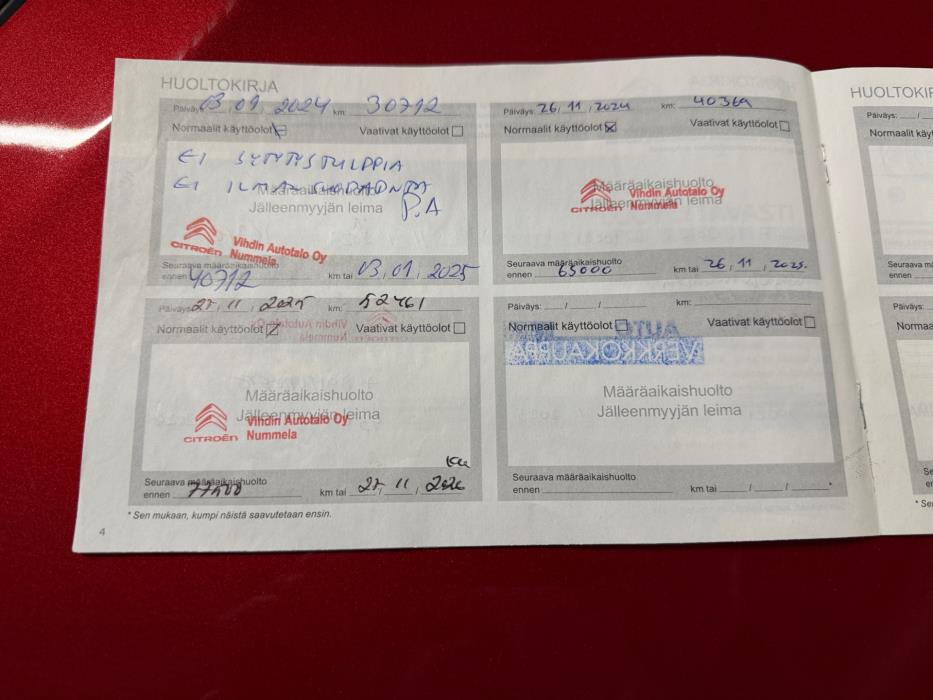 HUOLTOKIRJA
Päiväys: 03, 01, 2024 km: 30712
Normaalit käyttöolot Vaativat käyttöolot
EI SYTYTYSTULPPIA
EI ILMAN
Määräaikaishuolto
Jälleenmyyjän leima P.A
CITROËN Vihdin Autotalo Oy
Nummela
Seuraava määräaikaishuolto
ennen 40712 km tai 03, 01, 2025
Päiväys: 26, 11, 2024 km: 40369
Normaalit käyttöolot Vaativat käyttöolot
Määräaikaishuolto
Jälleenmyyjän leima
CITROËN Vihdin Autotalo Oy
Nummela
Seuraava määräaikaishuolto
ennen 65000 km tai 26, 11, 2025.
Päiväys: 27, 11, 2025 km: 52461
Normaalit käyttöolot Vaativat käyttöolot
Määräaikaishuolto
Jälleenmyyjän leima
CITROËN Vihdin Autotalo Oy
Nummela
Seuraava määräaikaishuolto
ennen 77500 km tai 27, 11, 2026
Päiväys: / / km:
Normaalit käyttöolot Vaativat käyttöolot
AUTO
VERKKOKAUPPA
Määräaikaishuolto
Jälleenmyyjän leima
Seuraava määräaikaishuolto
ennen km tai / / *
* Sen mukaan, kumpi näistä saavutetaan ensin.
4
HUOLTOKIR
Päiväys: /
Normaalit kä
Päiväys: /
Norma
* Se